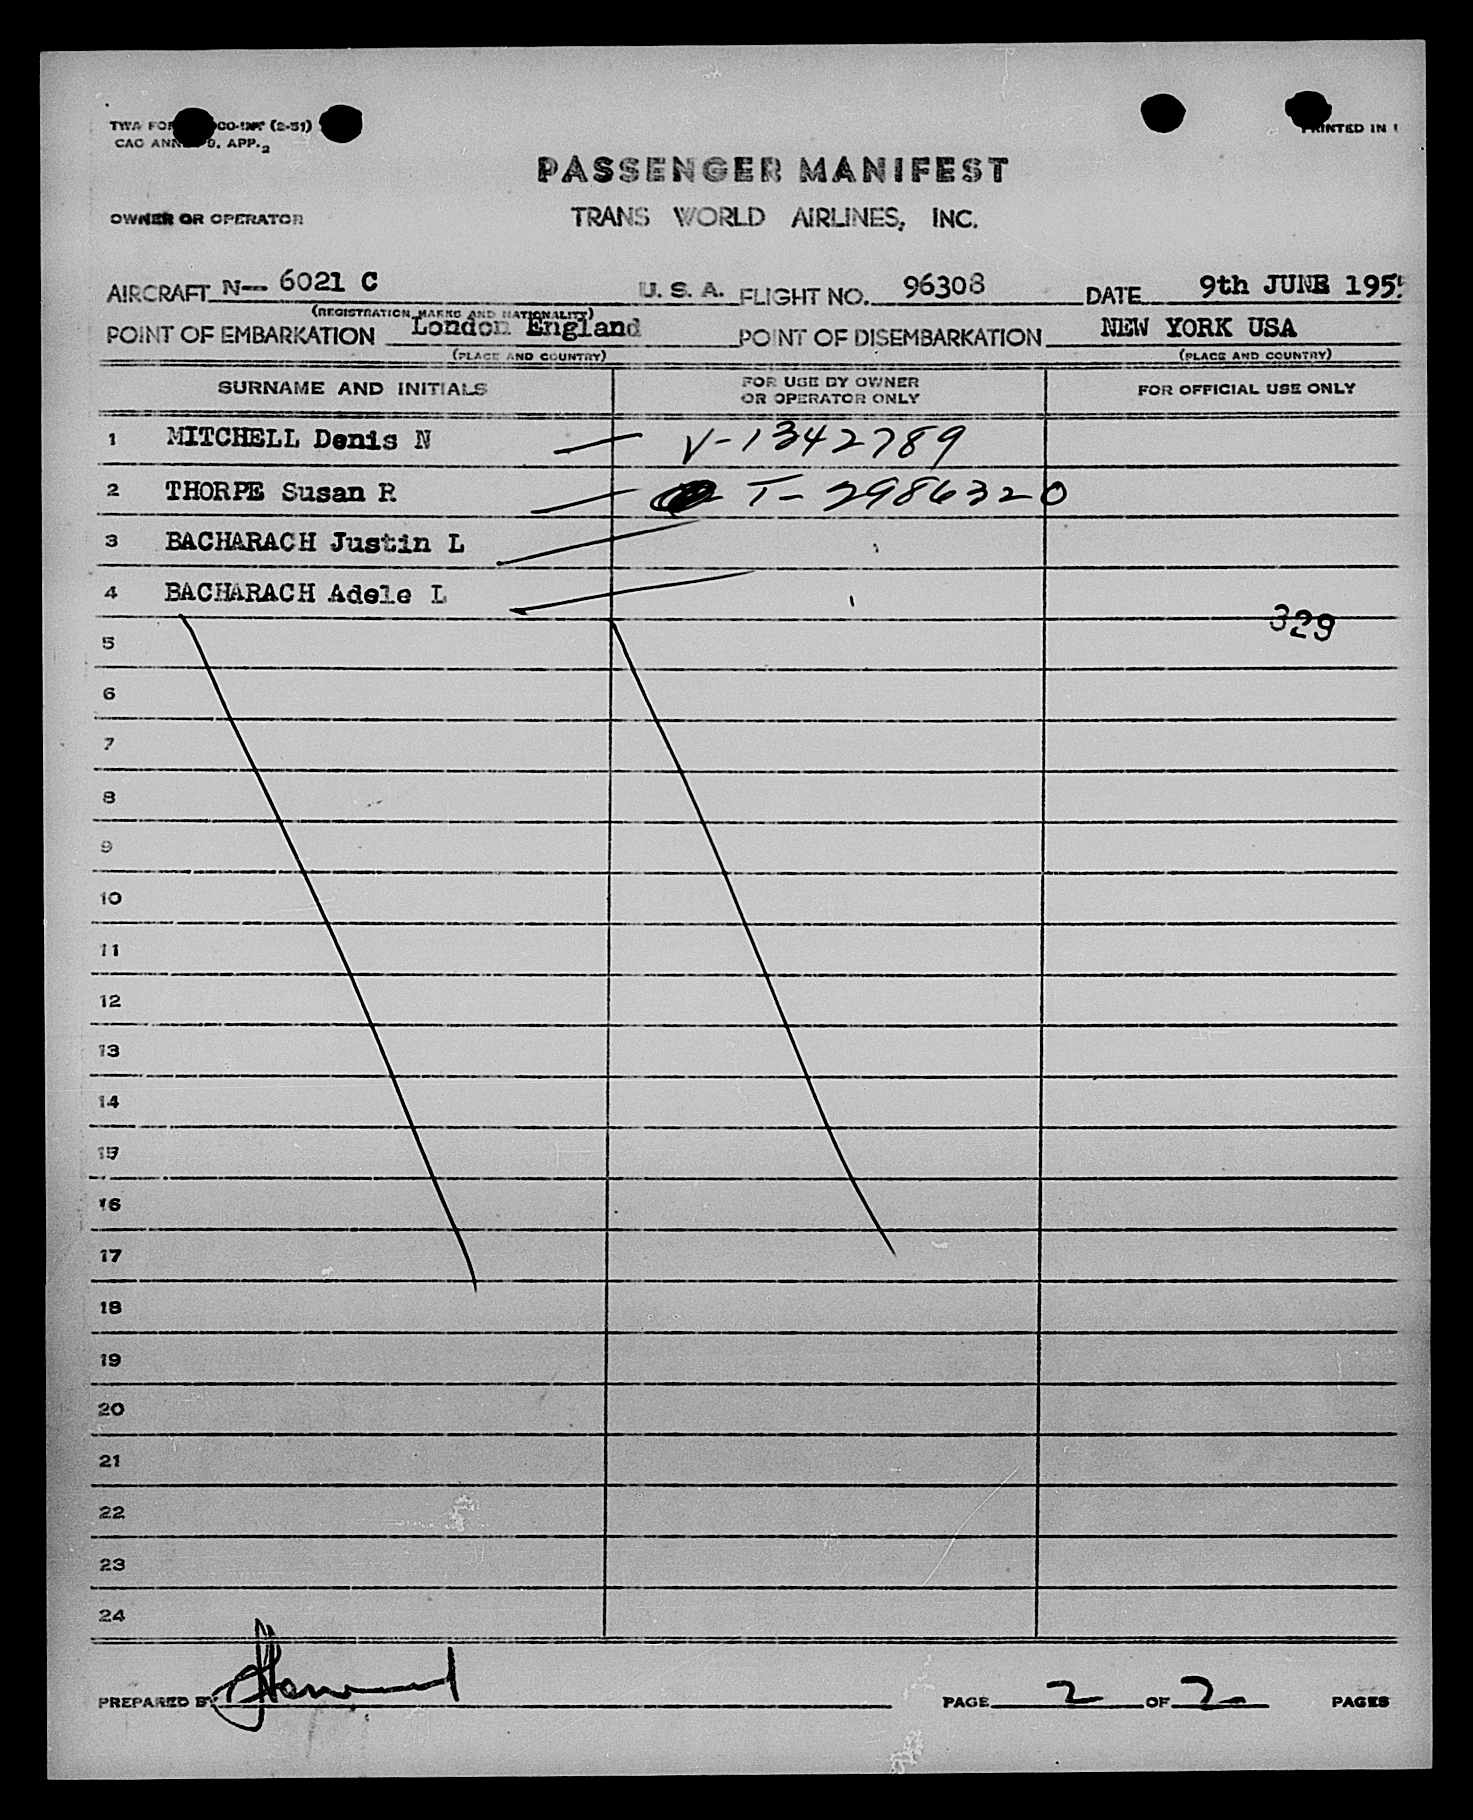 TWA FOR CO-INT (2-51)
PRINTED IN
CAO ANN 9, APP. 2
PASSENGER MANIFEST
OWNER OR OPERATOR TRANS WORLD AIRLINES, INC.
AIRCRAFT N-- 6021 C U. S. A. FLIGHT NO. 96308 DATE 9th JUNE 1955
(REGISTRATION MARKS AND NATIONALITY)
POINT OF EMBARKATION London England POINT OF DISEMBARKATION NEW YORK USA
(PLACE AND COUNTRY) (PLACE AND COUNTRY)
SURNAME AND INITIALS FOR USE BY OWNER OR OPERATOR ONLY FOR OFFICIAL USE ONLY
1 MITCHELL Denis N V-1342789
2 THORPE Susan R T-2986320
3 BACHARACH Justin L
4 BACHARACH Adele L
329
5
6
7
8
9
10
11
12
13
14
15
16
17
18
19
20
21
22
23
24
PREPARED BY PAGE 2 OF 2 PAGES